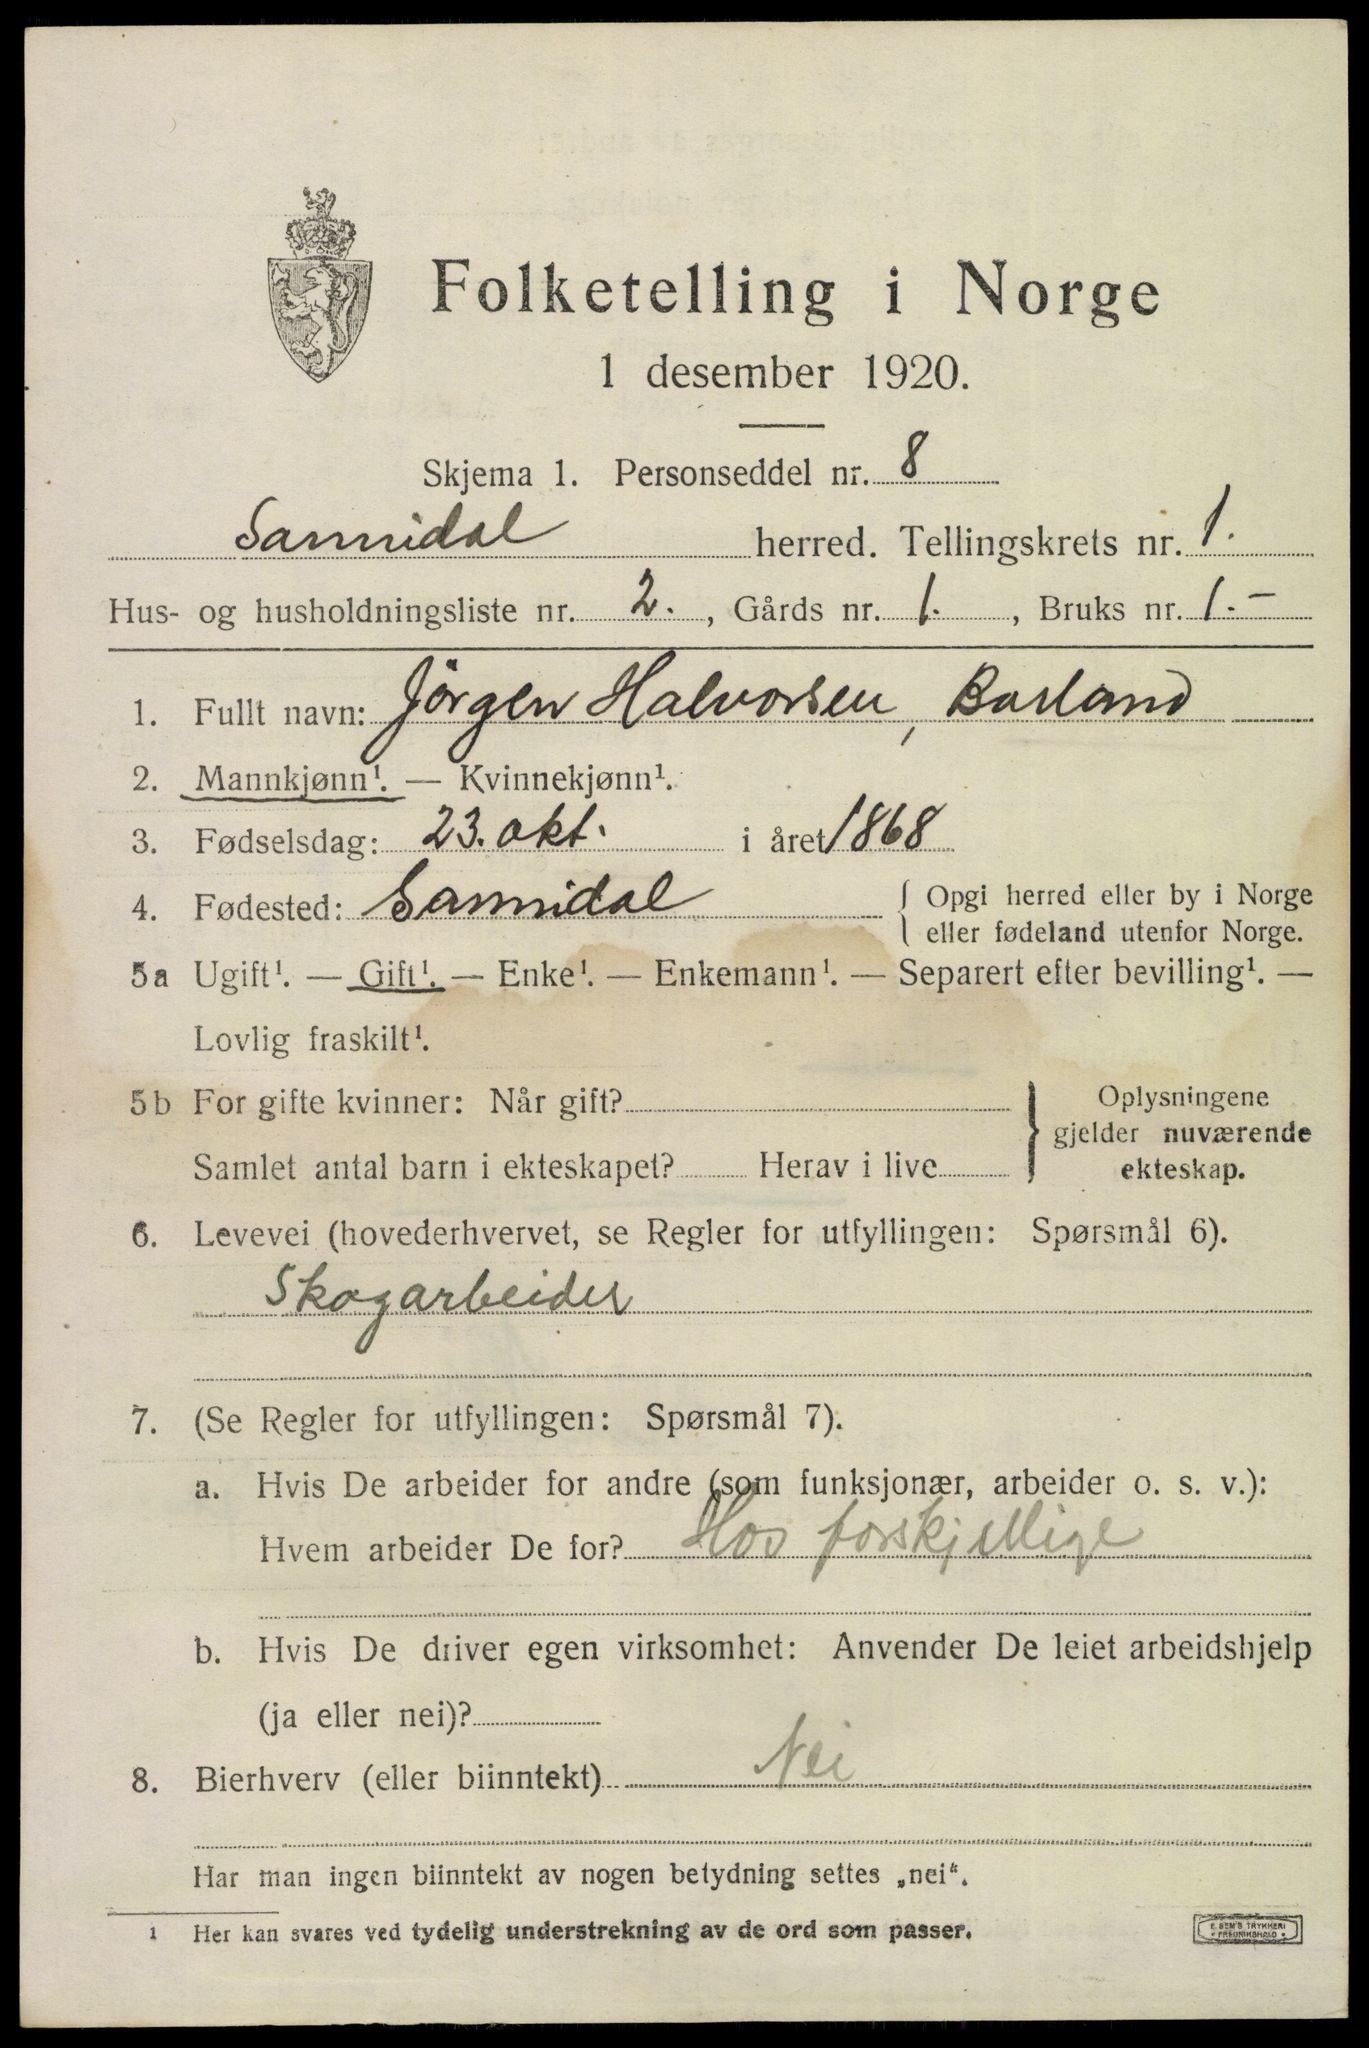 Folketelling i Norge
1 desember 1920.
Skjema 1. Personseddel nr. 8
Sannidal herred. Tellingskrets nr. 1.
Hus- og husholdningsliste nr. 2. , Gårds nr. 1. , Bruks nr. 1.-
1. Fullt navn: Jörgen Halvorsen, Barland
2. Mannkjønn¹. — Kvinnekjønn¹.
3. Fødselsdag: 23. okt. i året 1868
4. Fødested: Sannidal { Opgi herred eller by i Norge
eller fødeland utenfor Norge.
5a Ugift¹. — Gift¹. — Enke¹. — Enkemann¹. — Separert efter bevilling¹. —
Lovlig fraskilt¹.
5b For gifte kvinner: Når gift?
Samlet antal barn i ekteskapet? Herav i live
} Oplysningene
gjelder nuværende
ekteskap.
6. Levevei (hovederhvervet, se Regler for utfyllingen: Spørsmål 6).
Skogarbeider
7. (Se Regler for utfyllingen: Spørsmål 7).
a. Hvis De arbeider for andre (som funksjonær, arbeider o. s. v.):
Hvem arbeider De for? Hos forskjellige
b. Hvis De driver egen virksomhet: Anvender De leiet arbeidshjelp
(ja eller nei)?
8. Bierhverv (eller biinntekt) Nei
Har man ingen biinntekt av nogen betydning settes „nei“.
1 Her kan svares ved tydelig understrekning av de ord som passer.
E. SEM'S TRYKKERI
• FREDRIKSHALD •